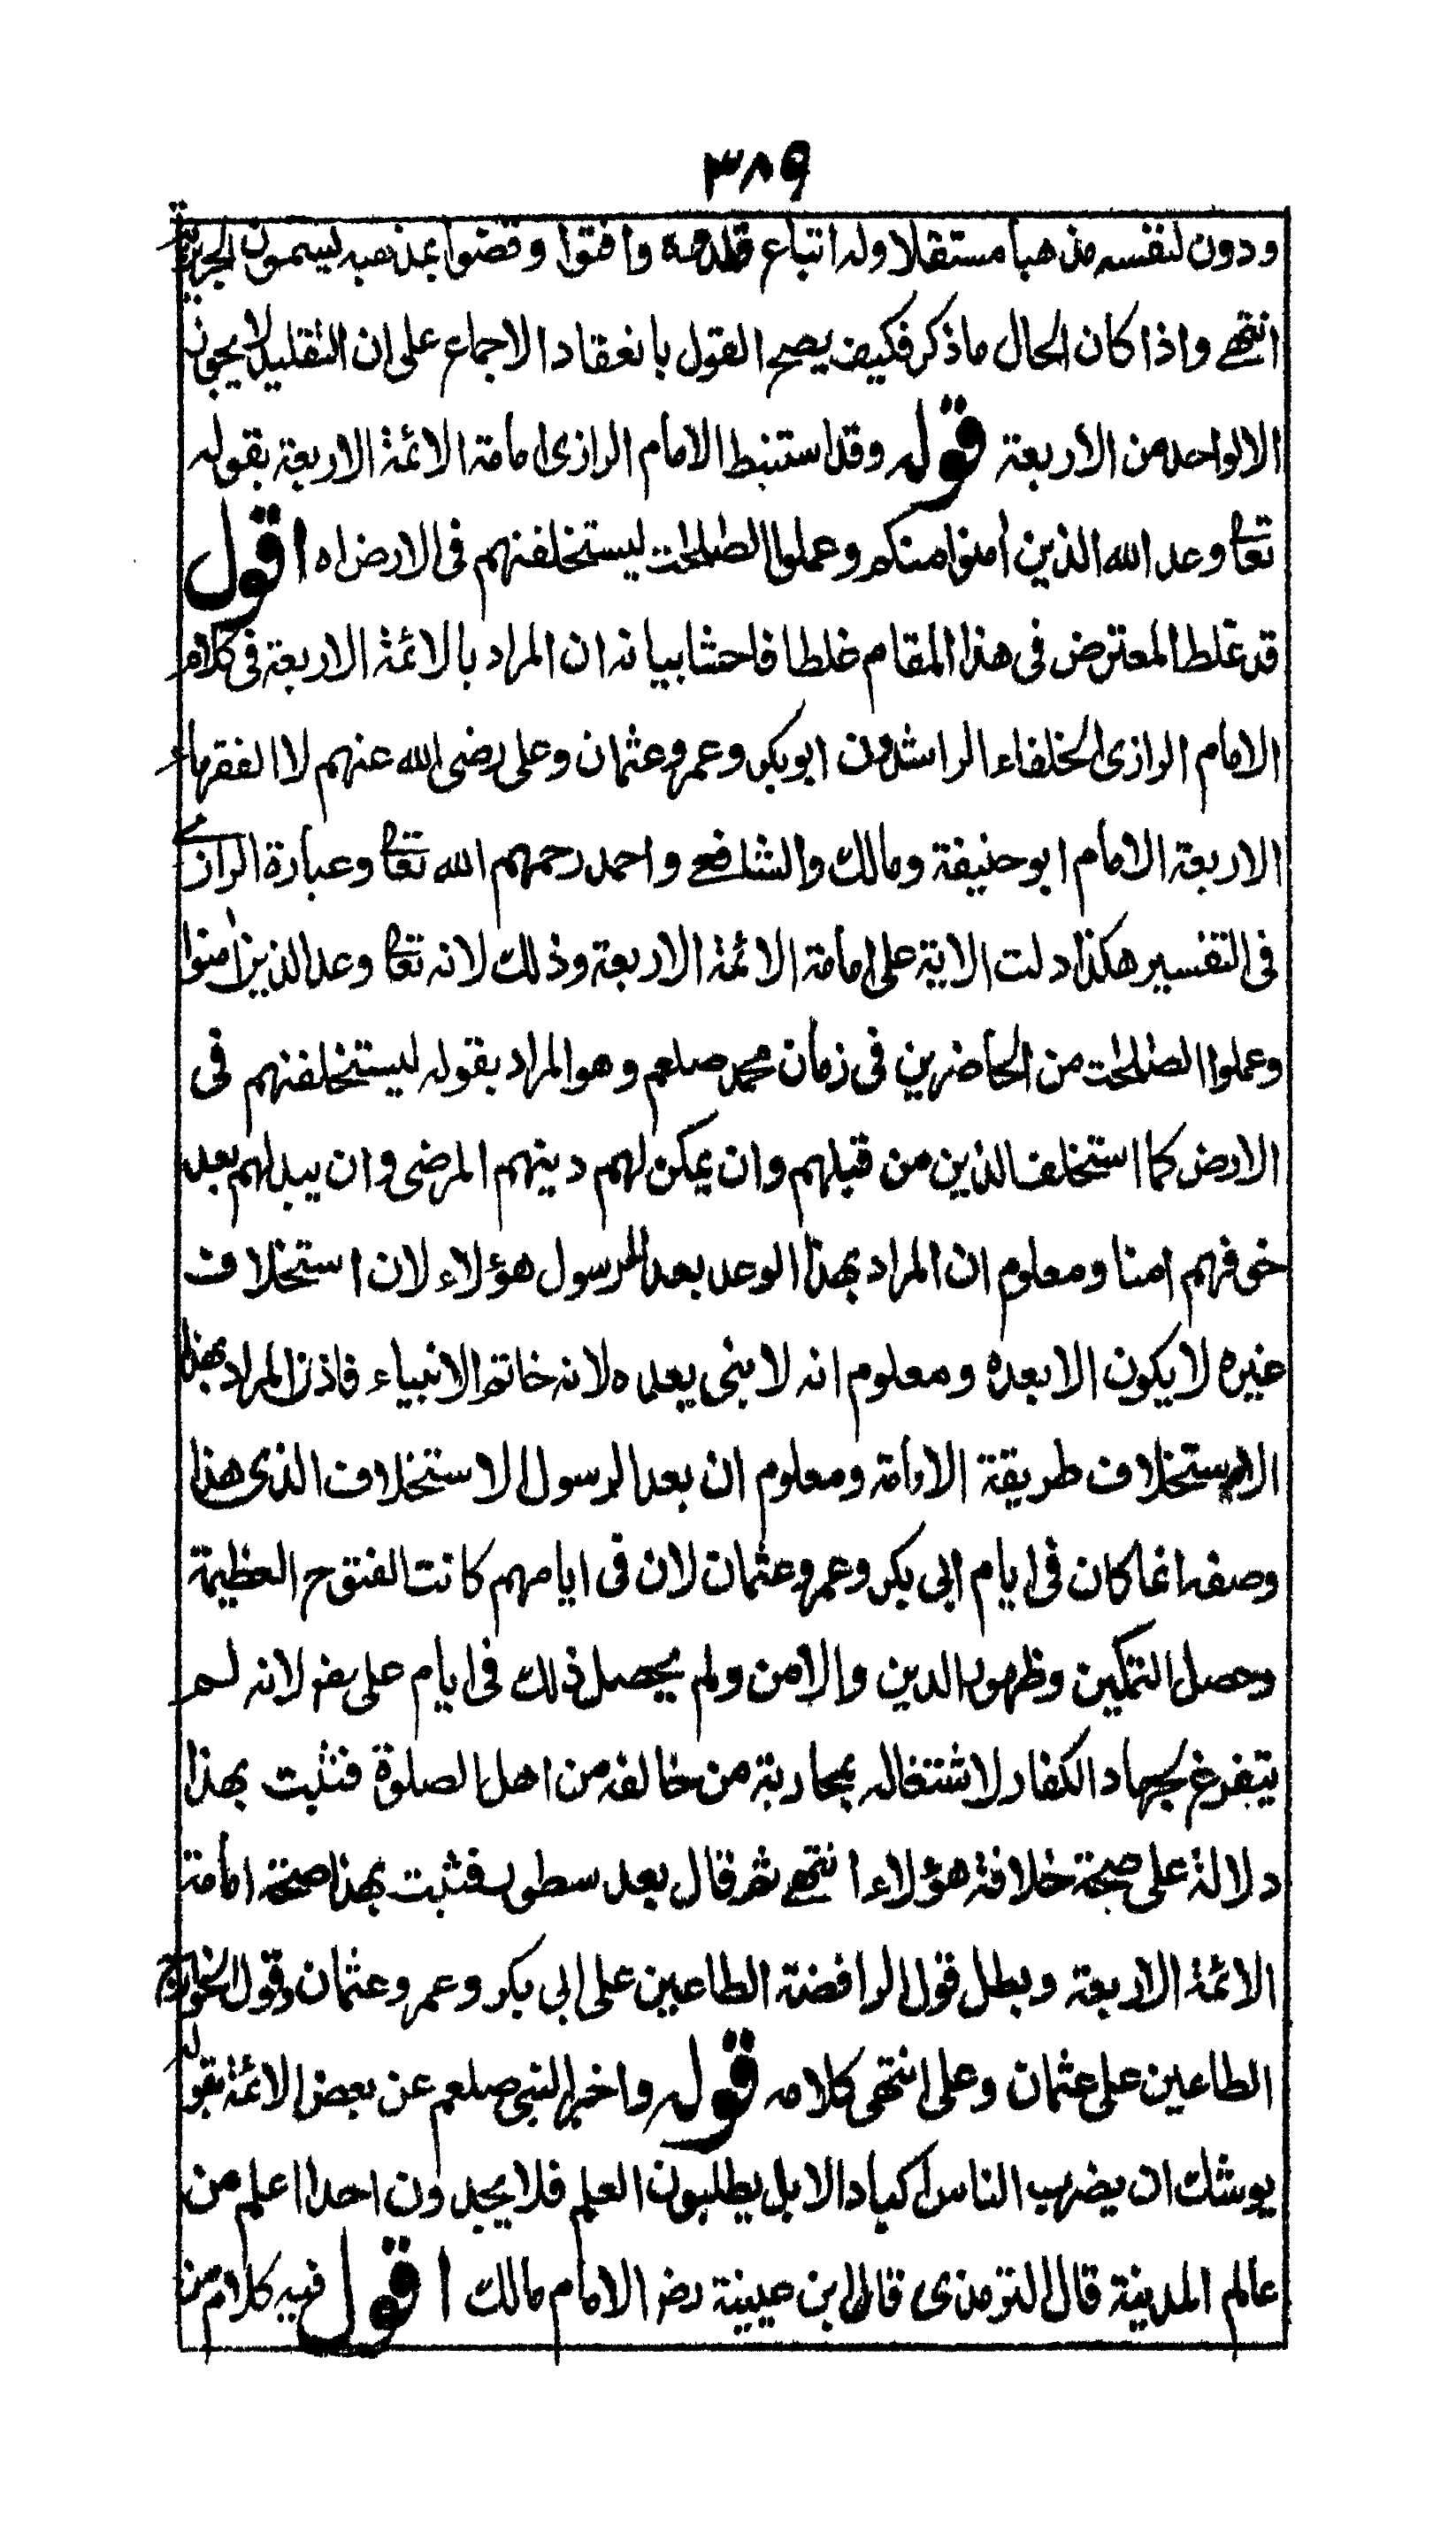 ٣٨٩
ودون لنفسه مذهبا مستقلا وله اتباع قلدوه وافتوا وقضوا بمذهبه يسمون الجريرية
انتهے واذا كان الحال ما ذكر فكيف يصح القول بانعقاد الاجماع على ان التقليد لا يجوز
الا لواحد من الاربعة قوله وقد استنبط الامام الرازى امامة الائمة الاربعة بقوله
تعالى وعد الله الذين اٰمنوا منكم وعملوا الصلحٰت ليستخلفنهم فى الارض اه اقول
قد غلط المعترض فى هذا المقام غلطا فاحشا بيانه ان المراد بالائمة الاربعة فى كلام
الامام الرازى الخلفاء الراشدون ابو بكر وعمر وعثمان وعلى رضى الله عنهم لا الفقهاء
الاربعة الامام ابو حنيفة ومالك والشافعے واحمد رحمهم الله تعالى وعبارة الرازے
فى التفسير هكذا دلت الاية على امامة الائمة الاربعة وذلك لانه تعالى وعد الذين اٰمنوا
وعملوا الصلحٰت من الحاضرين فى زمان محمد صلعم وهو المراد بقوله ليستخلفنهم فى
الارض كما استخلف الذين من قبلهم وان يمكن لهم دينهم المرضى وان يبدلهم بعد
خوفهم امنا ومعلوم ان المراد بهذا الوعد بعد الرسول هؤلاء لان استخلاف
غيره لا يكون الا بعده ومعلوم انه لا نبى بعده لانه خاتم الانبياء فاذن المراد بهذا
الاستخلاف طريقة الامامة ومعلوم ان بعد الرسول الاستخلاف الذى هذا
وصفه انما كان فى ايام ابى بكر وعمر وعثمان لان فى ايامهم كانت الفتوح العظيمة
وحصل التمكين وظهور الدين والامن ولم يحصل ذلك فى ايام على رض لانه لم
يتفرغ لجهاد الكفار لاشتغاله بمحاربة من خالفه من اهل الصلوة فثبت بهذا
دلالة على صحة خلافة هؤلاء انتهے ثم قال بعد سطور فثبت بهذا صحة امامة
الائمة الاربعة وبطل قول الرافضة الطاعين على ابى بكر وعمر وعثمان وقول الخوارج
الطاعين على عثمان وعلى انتهى كلامه قوله واخبر النبى صلعم عن بعض الائمة بقوله
يوشك ان يضرب الناس اكباد الابل يطلبون العلم فلا يجدون احدا اعلم من
عالم المدينة قال الترمذى قال ابن عيينة رض الامام مالك اقول فيه كلام من